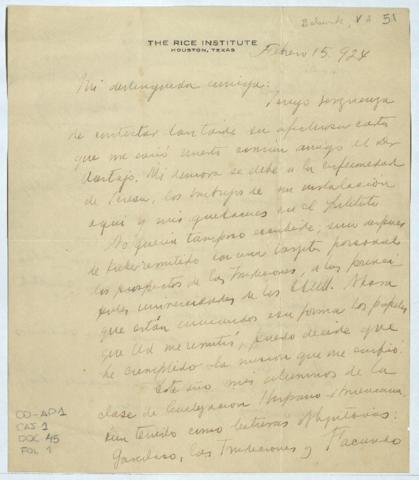 Belaunde, V. A. 51
THE RICE INSTITUTE
HOUSTON, TEXAS
Febrero 15. 924
Mi distinguida amiga:
Tengo vergüenza
de contestar tan tarde su afectuosa carta
que me envió nuestro común amigo el Dr
Mi demora se debe a la enfermedad
de Teresa, los trabajos de mi instalación
aquí y mis quehaceres en el Instituto
No quería tampoco escribirle, sino despues
de haber remitido con una tarjeta personal
los prospectos de las Tradiciones, a las princi
pales universidades de los EEUU. Ahora
que están enviados en forma los papeles
que Ud me remitió, puedo decirle que
he cumplido la misión que me confió.
Este año mis alumnos de la
clase de Civilización Hispano Americana
han tenido como lecturas obligatorias:
Garcilaso, las Tradiciones y Facundo
CO-AP1
CAJ 1
DOC 45
FOL 1